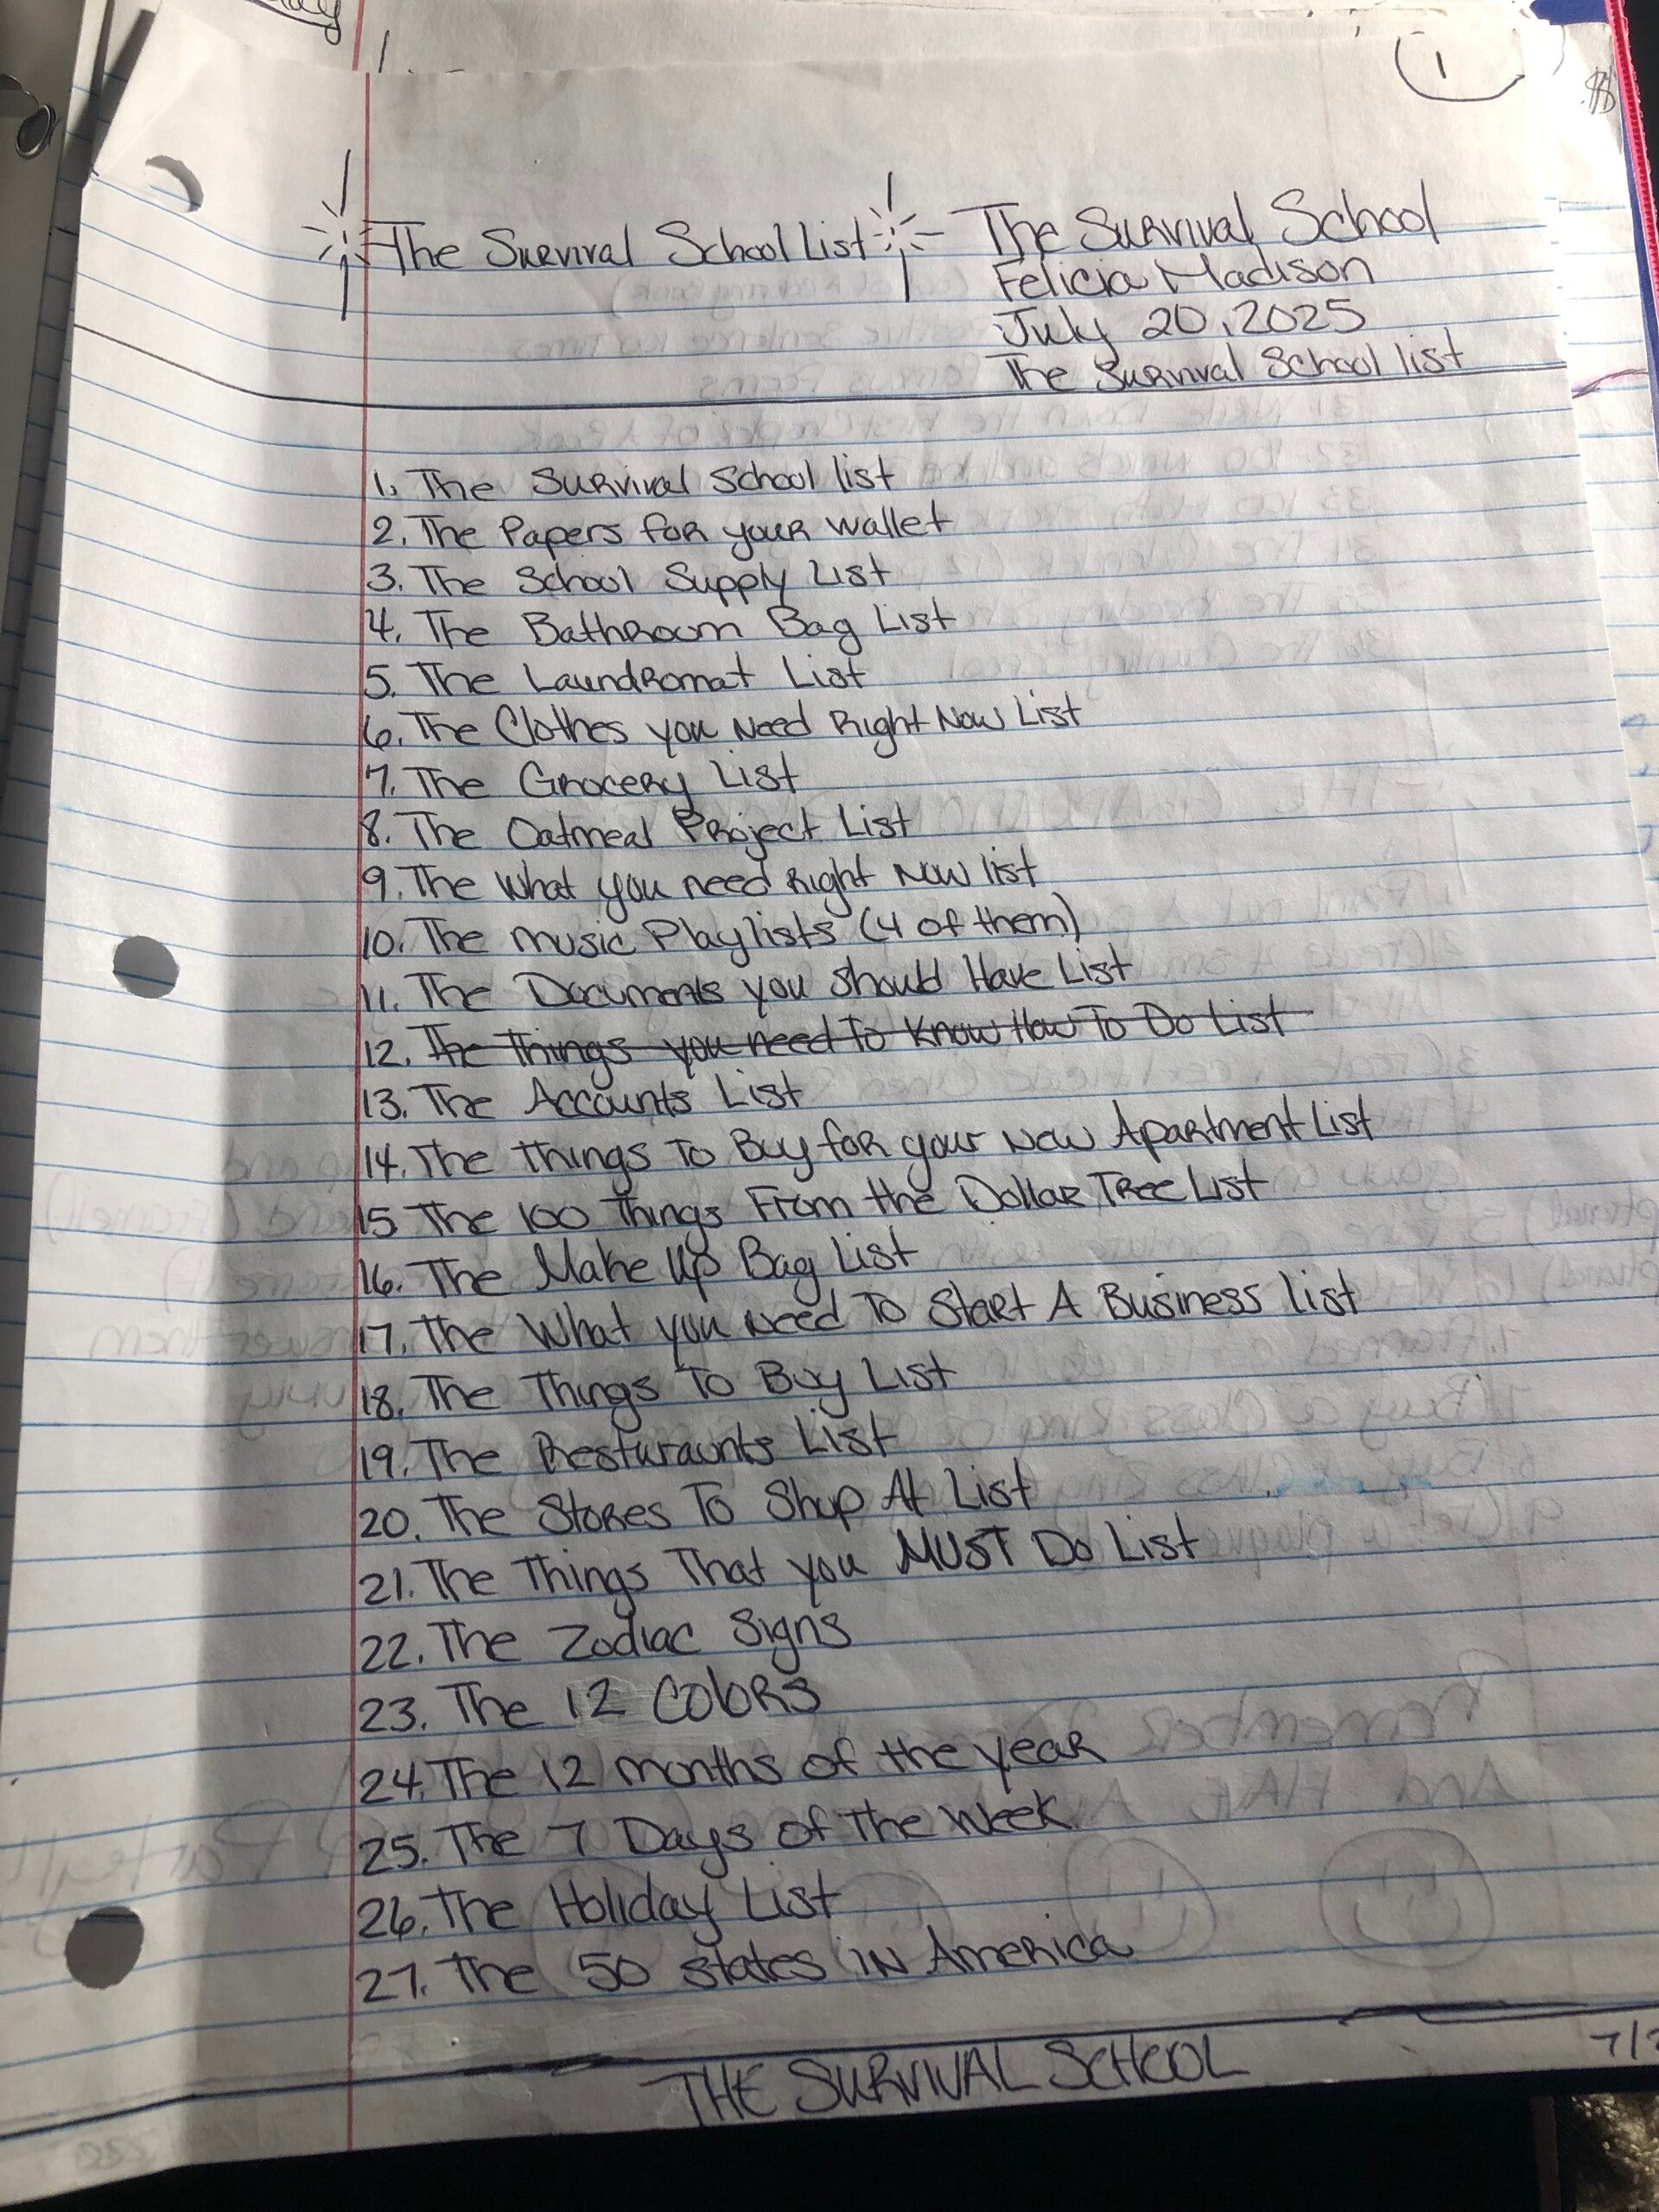 1
The Survival School List
The Survival School
Felicia Madison
July 20, 2025
The Survival School list
1. The Survival School list
2. The Papers for your wallet
3. The School Supply List
4. The Bathroom Bag List
5. The Laundromat List
6. The Clothes you Need Right Now List
7. The Grocery List
8. The Oatmeal Project List
9. The What you need Right Now list
10. The music Playlists (4 of them)
11. The Documents you should Have List
12. The Things you need To Know How To Do List
13. The Accounts List
14. The Things To Buy for your New Apartment List
15 The 100 Things From the Dollar Tree List
16. The Make Up Bag List
17. The What you Need To Start A Business list
18. The Things To Buy List
19. The Resturaunts List
20. The Stores To Shop At List
21. The Things That you MUST Do List
22. The Zodiac Signs
23. The 12 Colors
24. The 12 months of the year
25. The 7 Days of The Week
26. The Holiday List
27. The 50 states in America
THE SURVIVAL SCHOOL